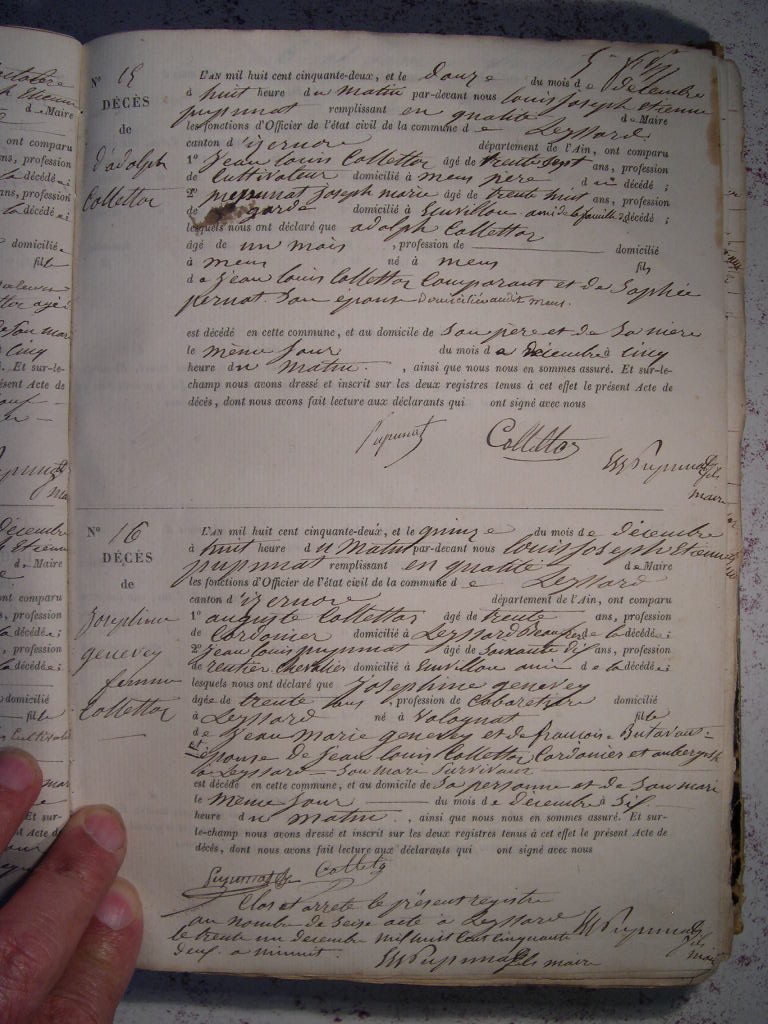 N° 15
DÉCÈS
de
d'adolph
Collettaz
L'AN mil huit cent cinquante-deux, et le douze du mois de décembre
à huit heure du Matin par-devant nous louis Joseph etienne
pupunnat remplissant en qualité de Maire
les fonctions d'Officier de l'état civil de la commune de Leyssard
canton d'izernore département de l'Ain, ont comparu
1° Jean louis Collettaz âgé de trente sept ans, profession
de Cultivateur domicilié à mens père du décédé ;
2° pupunat Joseph marie âgé de trente huit ans, profession
de garde domicilié à Suvillou ami de la famille décédé ;
lesquels nous ont déclaré que adolph Collettaz
âgé de un mois , profession de domicilié
à mens né à mens fils
de Jean louis Collettaz Comparant et de Sophie
pernat Son epouse Domiciliés audit mens.
est décédé en cette commune, et au domicile de Son père et de Sa mère
le même Jour du mois de décembre à Cinq
heure du Matin , ainsi que nous nous en sommes assuré. Et sur-le-
champ nous avons dressé et inscrit sur les deux registres tenus à cet effet le présent Acte de
décès, dont nous avons fait lecture aux déclarants qui ont signé avec nous
Pupunat Collettaz
Pupunat fils
maire
N° 16
DÉCÈS
de
Josephine
genevey
femme
Collettaz
L'AN mil huit cent cinquante-deux, et le quinze du mois de décembre
à huit heure du Matin par-devant nous louis Joseph Etienne
pupunnat remplissant en qualité de Maire
les fonctions d'Officier de l'état civil de la commune de Leyssard
canton d'izernore département de l'Ain, ont comparu
1° auguste Collettaz âgé de trente ans, profession
de Cordonier domicilié à Leyssard Beaufrère de la décédée ;
2° Jean louis pupunnat âgé de Soixante dix ans, profession
de rentier chevalier domicilié à Suvillou ami de la décédée ;
lesquels nous ont déclaré que Josephine genevey
âgée de trente ans , profession de Cabaretière domicilié
à Leyssard né à Volognat fille
de Jean Marie genevey et de francoise Butavaus
et épouse de Jean louis Collettaz Cordonier et aubergiste
à Leyssard Son mari Survivant
est décédé en cette commune, et au domicile de Sa personne et de Son mari
le même Jour du mois de décembre à Six
heure du Matin , ainsi que nous nous en sommes assuré. Et sur-
le-champ nous avons dressé et inscrit sur les deux registres tenus à cet effet le présent Acte de
décès, dont nous avons fait lecture aux déclarants qui ont signé avec nous
Pupunat Colletaz
Clos et arrete le présent registre
au nombre de Seise acte à Leyssard
le trente un decembre mil huit Cent Cinquante
deux a minuit
Pupunat fils maire
Pupunat fils
maire